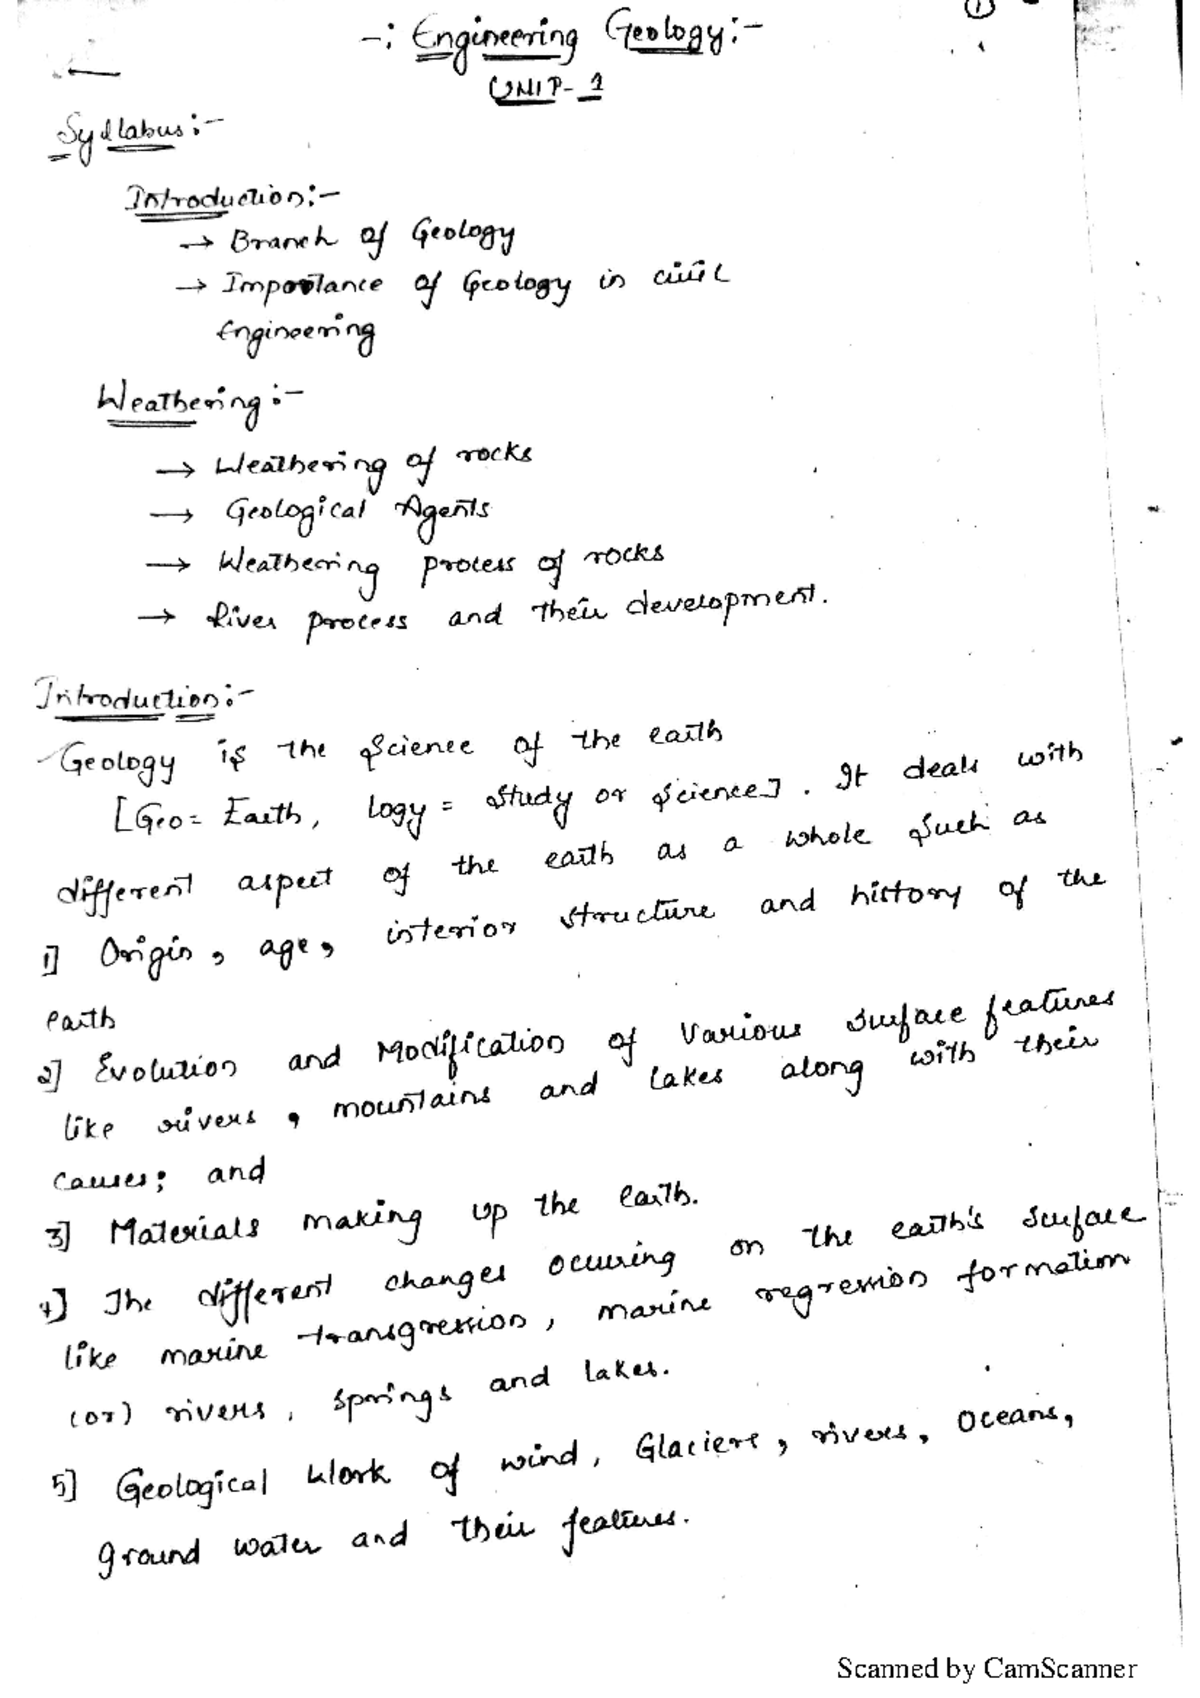 1
-: Engineering Geology:-
UNIP-1
Syllabus:-
Introduction:-
→ Branch of Geology
→ Importance of Geology in civil
Engineering
Weathering:-
→ Weathering of rocks
→ Geological Agents
→ Weathering process of rocks
→ River process and their development.
Introduction:-
Geology is the science of the earth
[Geo = Earth, logy = study or science]. It deals with
different aspect of the earth as a whole such as
1] Origin, age, interior structure and history of the
earth
2] Evolution and Modification of various surface features
like rivers, mountains and lakes along with their
causes; and
3] Materials making up the earth.
4] The different changes occuring on the earth's surface
like marine transgression, marine regression formation
(or) rivers, springs and lakes.
5] Geological work of wind, Glaciers, rivers, oceans,
ground water and their features.
Scanned by CamScanner